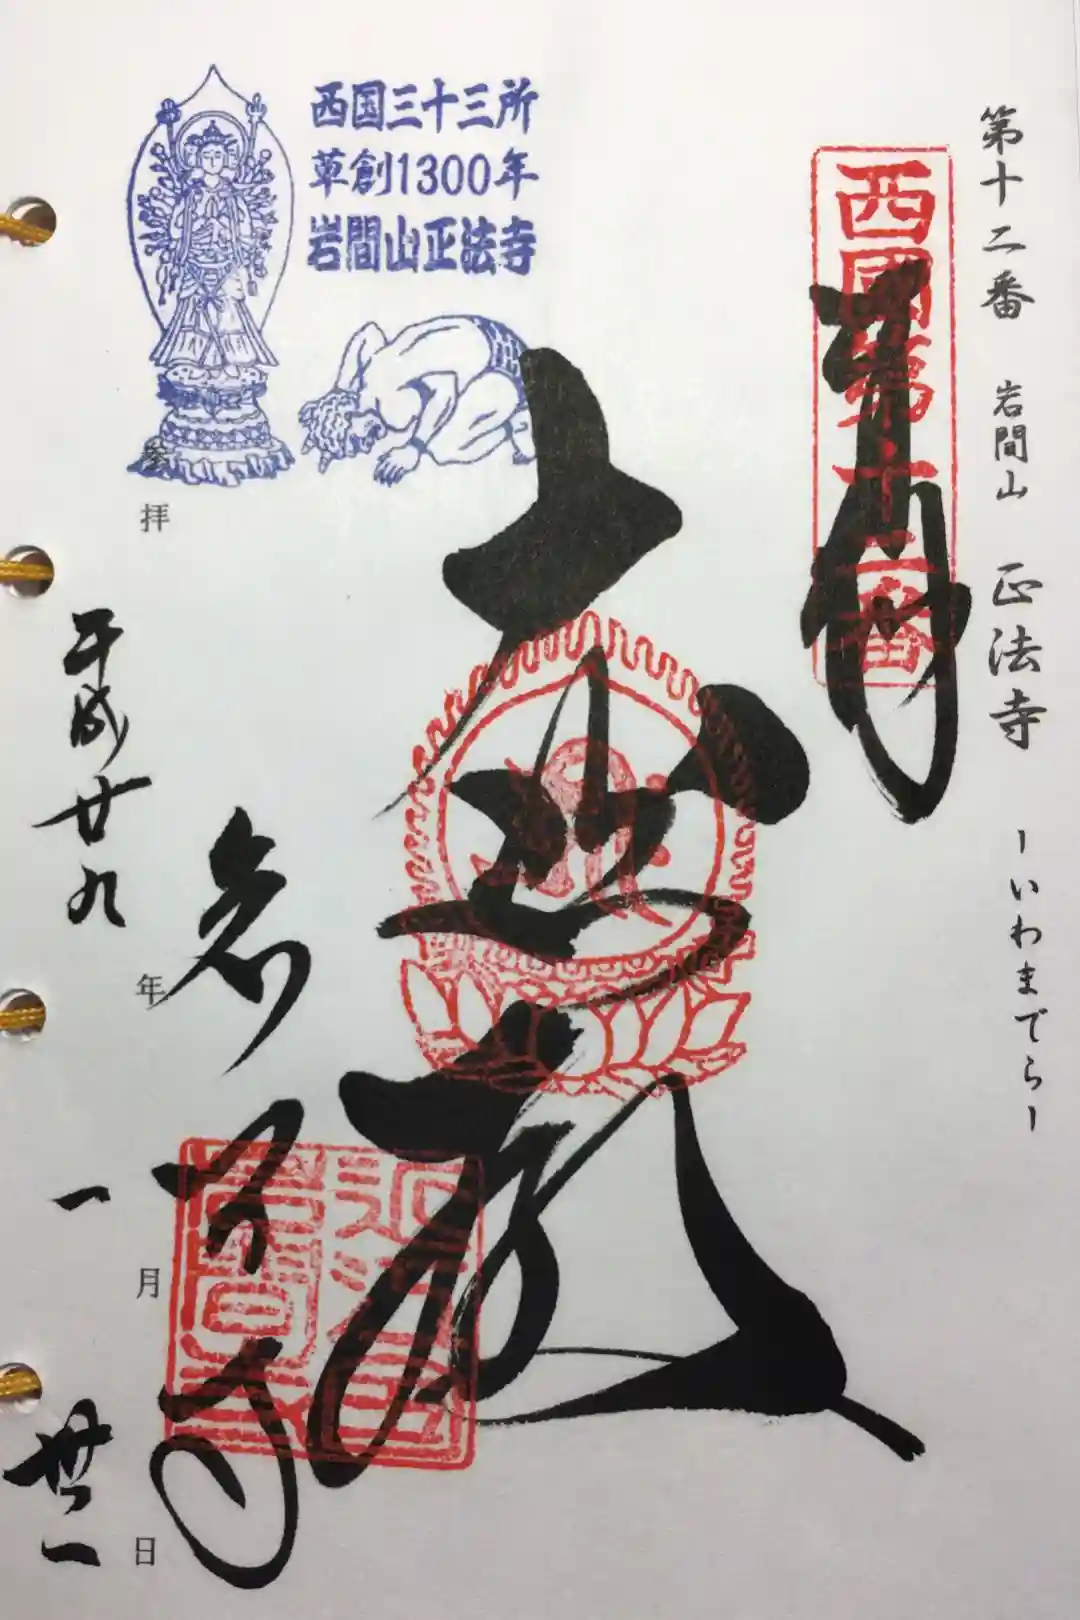 第十二番 岩間山 正法寺 ーいわまでらー
西國第十二番
奉拝
大悲殿
西国三十三所
草創1300年
岩間山正法寺
岩間寺
平成廿九年一月卅一日